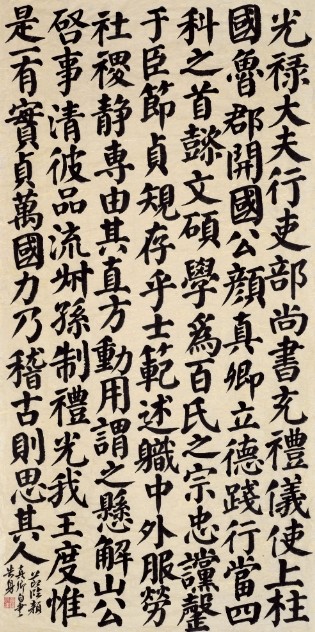 光禄大夫行吏部尚書充禮儀使上柱
國魯郡開國公顏真卿立德踐行當四
科之首懿文碩學爲百氏之宗忠讜罄
于臣節貞規存乎士範述職中外服勞
社稷静專由其直方動用謂之懸解山公
啓事清彼品流叔孫制禮光我王度惟
是一有實貞萬國力乃稽古則思其人
臨顏
真卿自書
告身